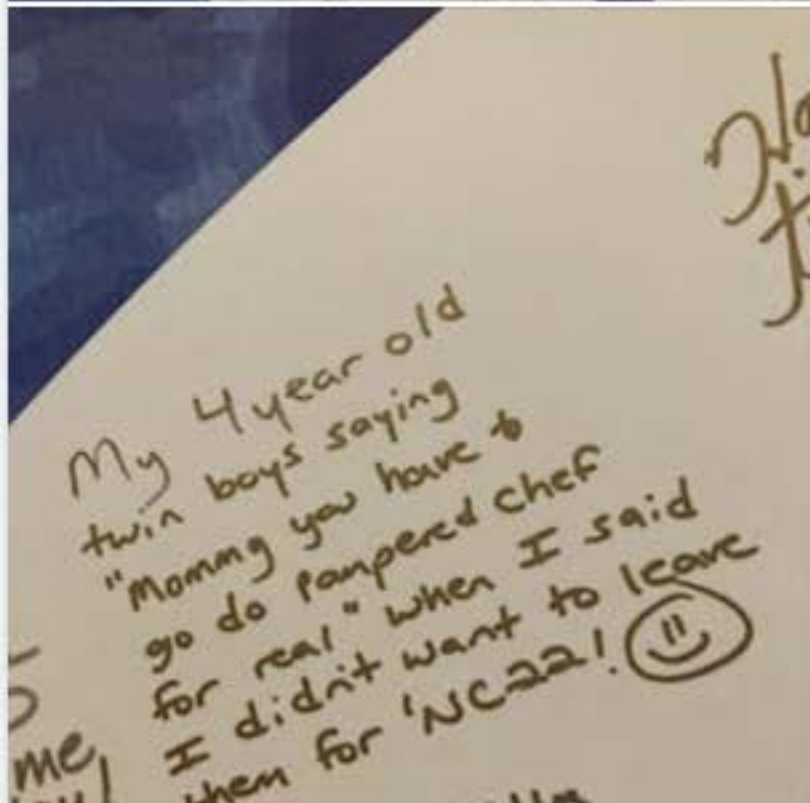 My 4 year old
twin boys saying
"Mommy you have to
go do Pampered Chef
for real" when I said
I didn't want to leave
them for 'NC22!
me,